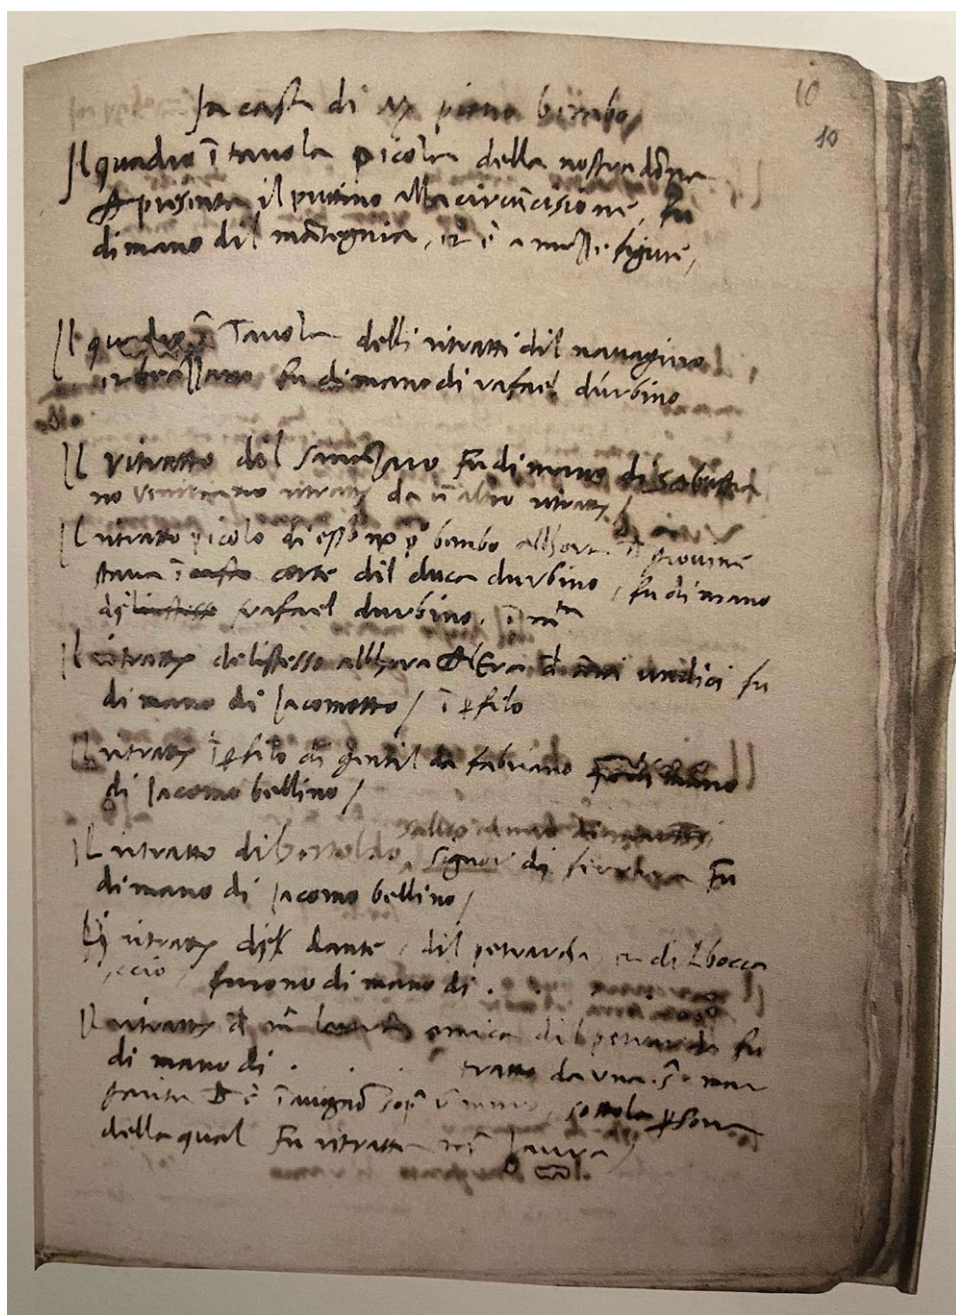 10
10
In casa di mr piero bembo
Il quadro ī tauola picola della nostra dōna
presenta il puttino alla circūcisione, fu
di mano dil mātegnia, et è a meze figure,
Il quadro ī Tauola delli ritratti dil nauagiero
et beazzano fu di mano di rafael durbino
Il ritratto dil sanazaro Fu di mano di sebastia
no venitiano ritratto da ū altro ritratto
Il ritratto picolo di esso pº bembo allhora giovine
staua ī corte dil duca durbino, fu di mano
rafael durbino, ī
Il ritratto delistesso allhora era anni undici fu
di mano di Jacometto / ī ꝑfilo
Il ritratto ī ꝑfilo di gentil da fabriano
di Jacomo bellino /
Il ritratto di bertoldo signor di Fu
di mano di Jacomo bellino /
Li ritratti dante, dil petrarcha et di bocca
ccio furono di mano di . .
Il ritratto amica dil petrarcha fu
di mano di . . . tratto da vna S. mar
garita è ī auignō sopra muro, sotto la ꝑsona
della qual Fu ritratta Laura